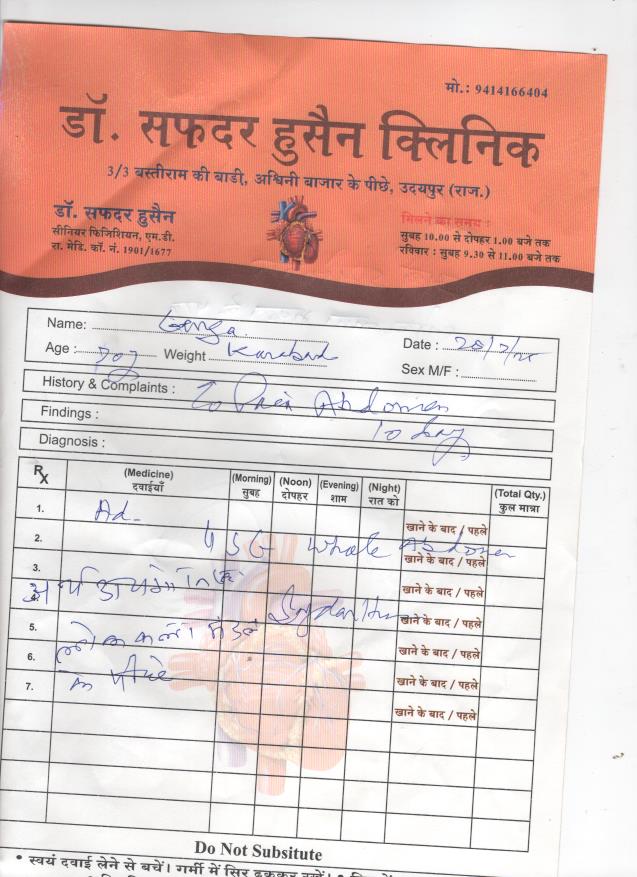 मो.: 9414166404
डॉ. सफदर हुसैन क्लिनिक
3/3 बस्तीराम की बाडी़, अश्विनी बाजार के पीछे, उदयपुर (राज.)
डॉ. सफदर हुसैन
सीनियर फिजिशियन, एम.डी.
रा. मेडि. कॉ. नं. 1901/1677
मिलने का समय :
सुबह 10.00 से दोपहर 1.00 बजे तक
रविवार : सुबह 9.30 से 11.00 बजे तक
Name: Ganga
Date :
Age : Weight
Sex M/F :
History & Complaints : Pain Abdomen
10 day
Findings :
Diagnosis :
Rx (Medicine) दवाईयाँ (Morning) सुबह (Noon) दोपहर (Evening) शाम (Night) रात को (Total Qty.) कुल मात्रा
1. Ad- खाने के बाद / पहले
2. USG Whole Abdomen खाने के बाद / पहले
3. खाने के बाद / पहले
खाने के बाद / पहले
5. लोक कला मंडल खाने के बाद / पहले
6. के पीछे खाने के बाद / पहले
7. खाने के बाद / पहले
Do Not Subsitute
• स्वयं दवाई लेने से बचें। गर्मी में सिर ढककर रखें।